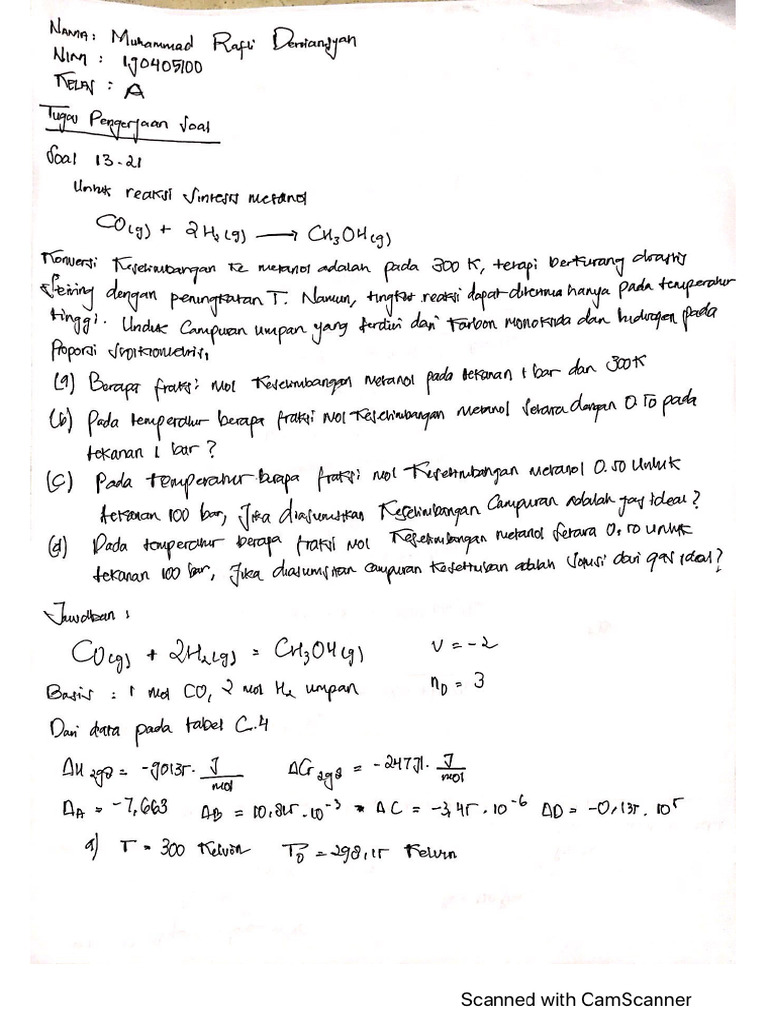 NAMA : Muhammad Rafli Derriansyan
NIM : 190405100
KELAS : A
Tugas Pengerjaan Soal
Soal 13-21
Untuk reaksi Sintesis metanol
CO(g) + 2H₂(g) ⟶ CH₃OH(g)
Konversi Kesetimbangan ke metanol adalah pada 300 K, tetapi berkurang drastis
Seiring dengan peningkatan T. Namun, tingkat reaksi dapat diterima hanya pada temperatur
tinggi. Untuk Campuran umpan yang terdiri dari karbon monoksida dan hidrogen pada
Proporsi stoikiometris,
(a) Berapa fraksi mol Kesetimbangan metanol pada tekanan 1 bar dan 300 K
(b) Pada temperatur berapa fraksi mol Kesetimbangan metanol Setara dengan 0.50 pada
tekanan 1 bar ?
(c) Pada temperatur berapa fraksi mol Kesetimbangan metanol 0.50 Untuk
tekanan 100 bar, Jika diasumsikan Kesetimbangan Campuran adalah gas ideal ?
(d) Pada temperatur berapa fraksi mol Kesetimbangan metanol Setara 0,50 untuk
tekanan 100 bar, Jika diasumsikan campuran adalah dari gas ideal ?
Jawaban :
CO(g) + 2H₂(g) = CH₃OH(g) V = -2
Basis : 1 mol CO, 2 mol H₂ umpan n₀ = 3
Dari data pada tabel C.4
ΔH 298 = -90135. J/mol ΔG 298 = -24791. J/mol
ΔA = -7,663 ΔB = 10,815.10⁻³ ΔC = -3,45.10⁻⁶ ΔD = -0,135.10⁵
a) T = 300 Kelvin T₀ = 298,15 Kelvin
Scanned with CamScanner